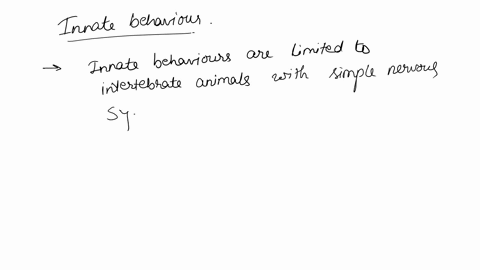 Innate behaviours.
→ Innate behaviours are limited to
invertebrate animals with simple nervous
Sy.